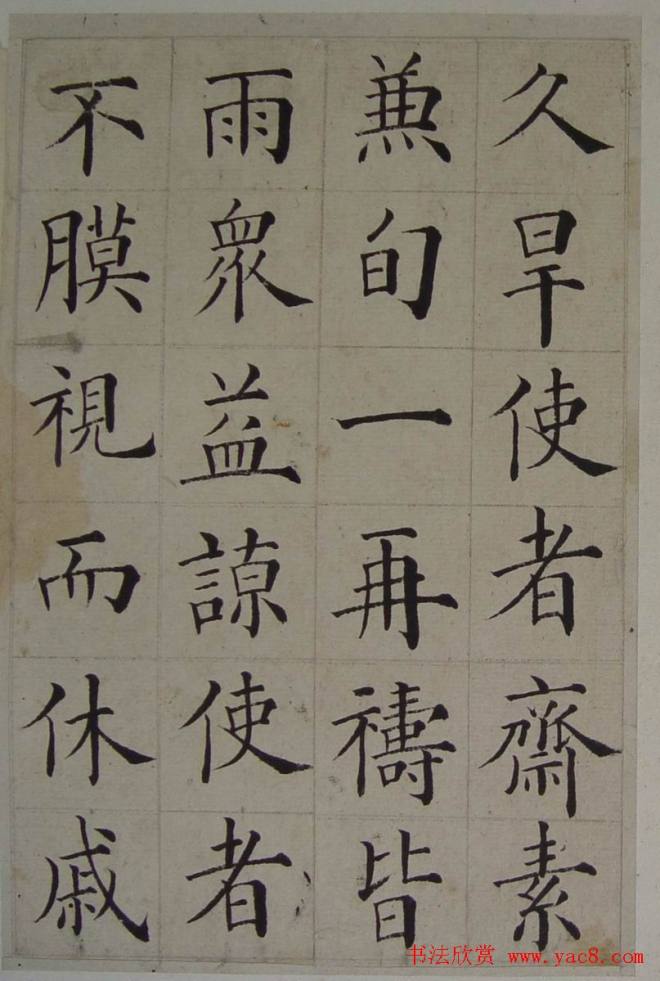 久旱使者齋素
兼旬一再禱皆
雨衆益諒使者
不膜視而休戚
书法欣赏 www.yac8.com